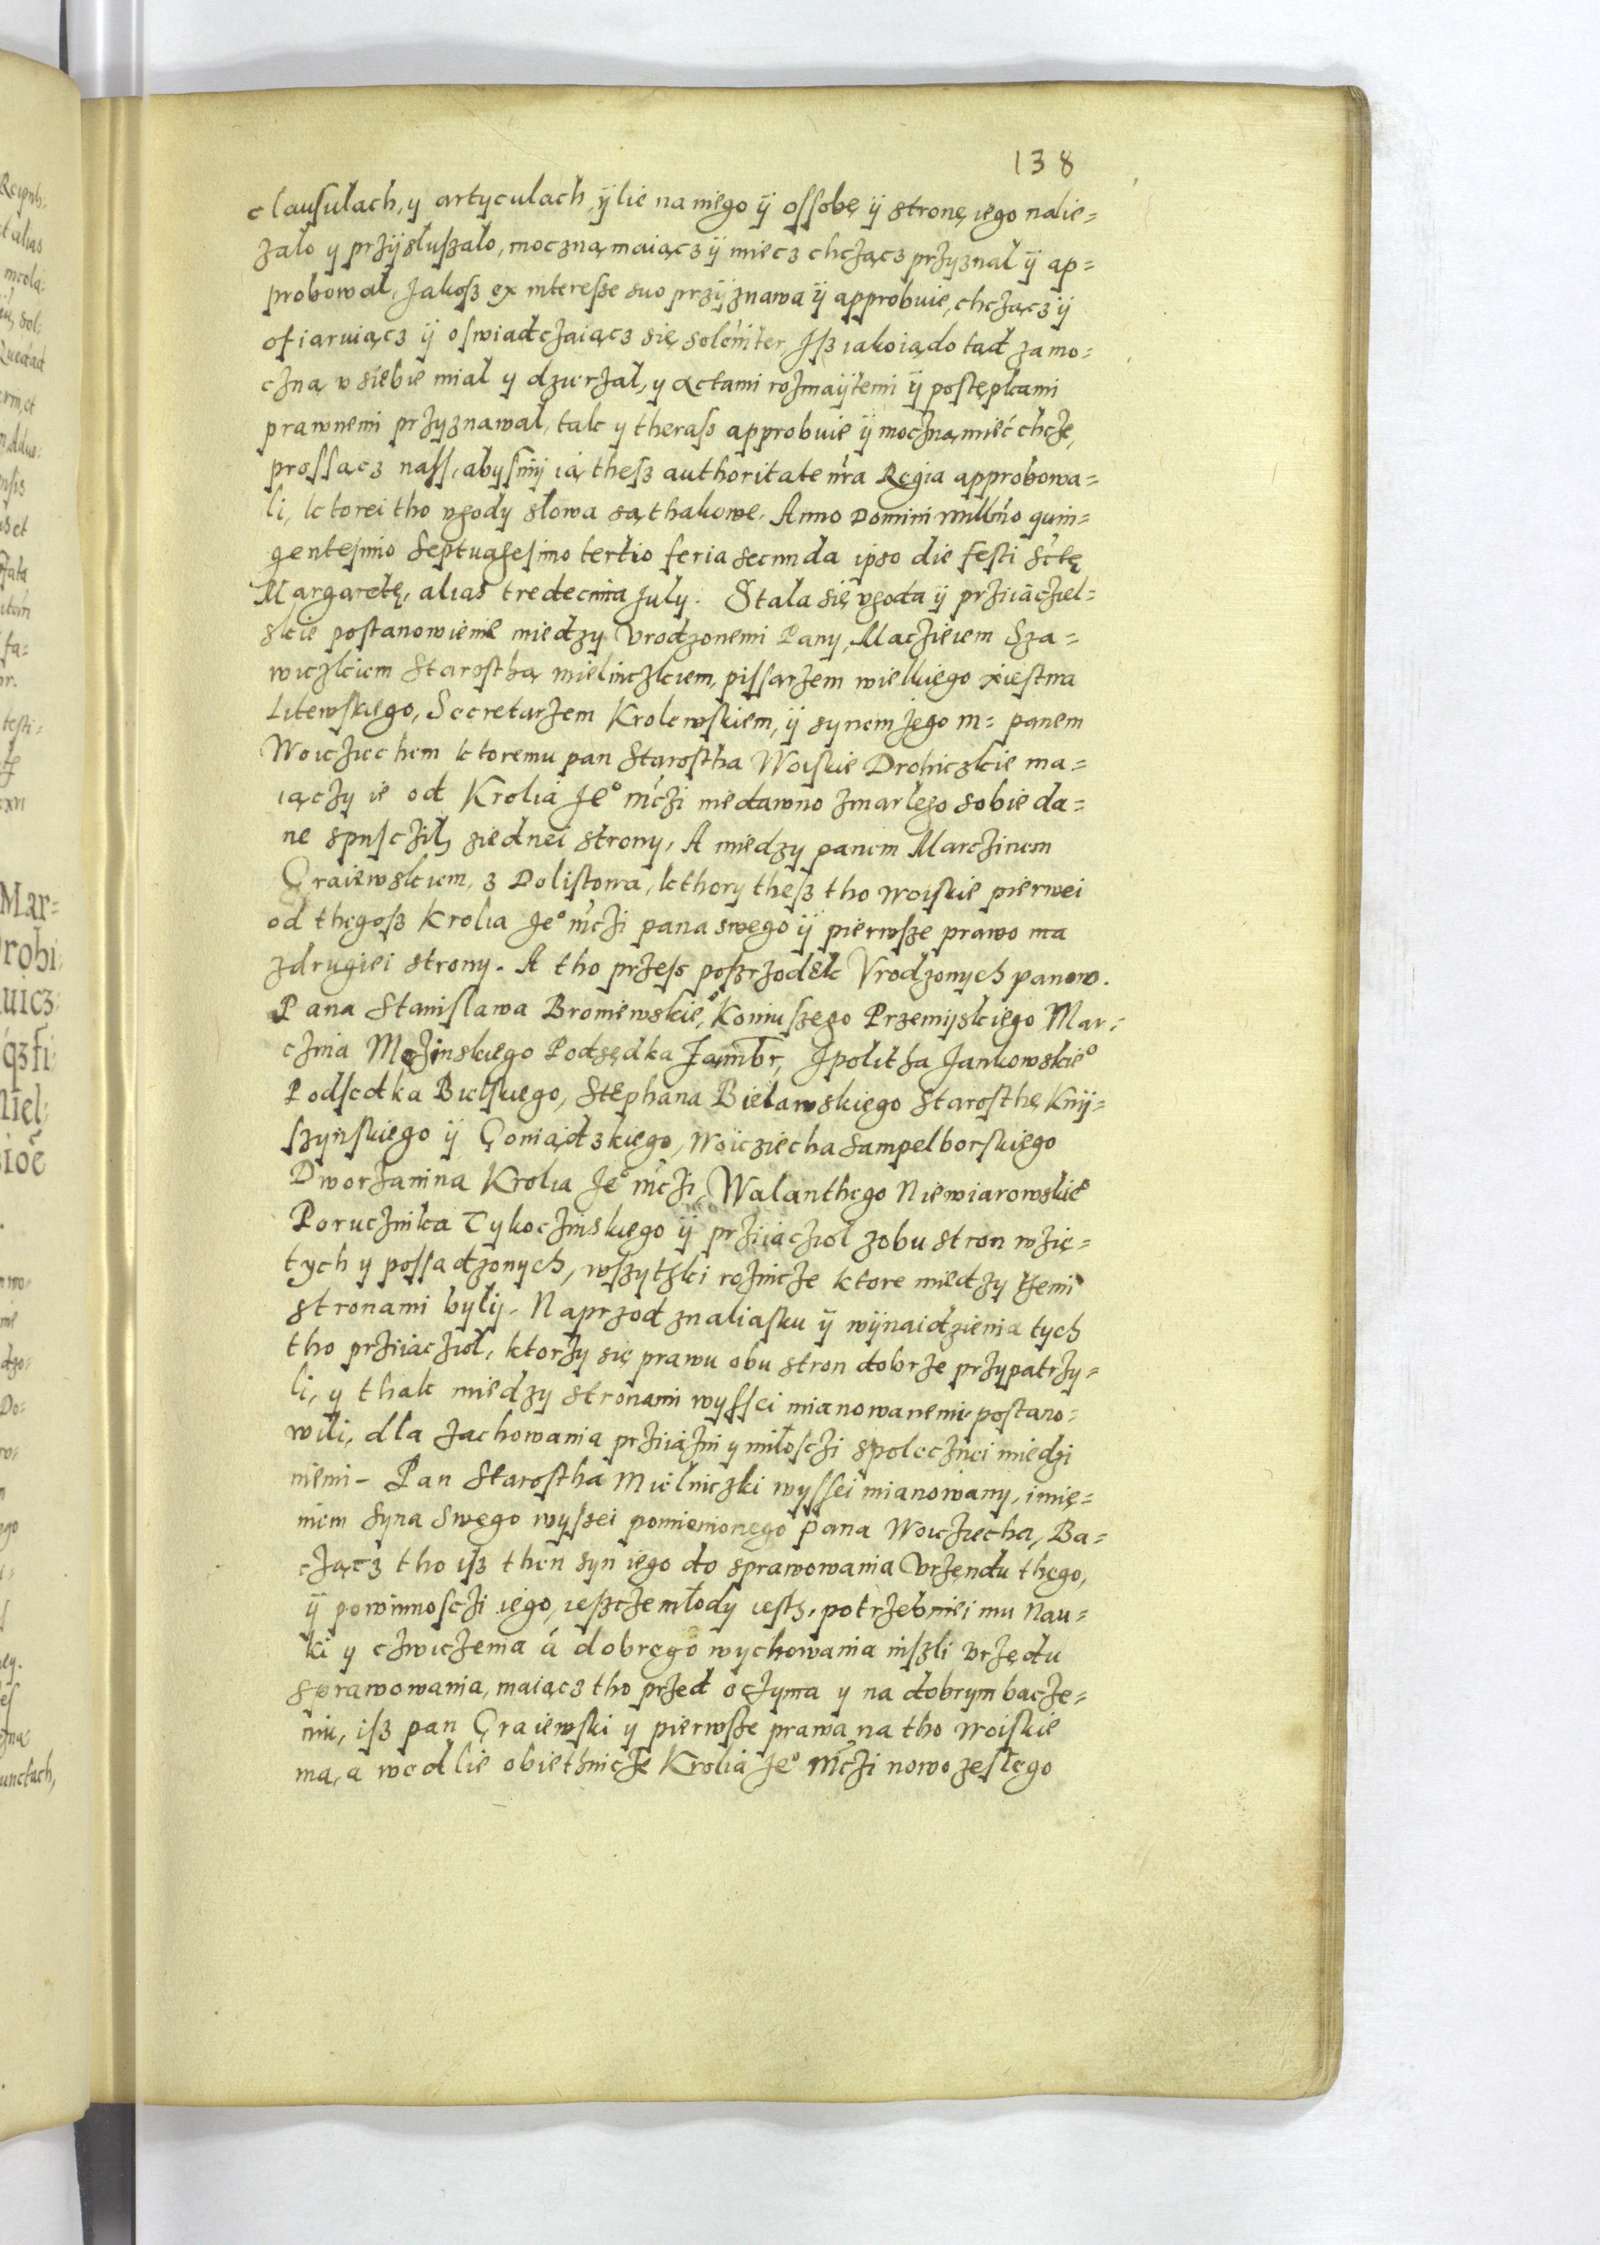 138
clausulach, y artyculach, ÿlie na niego ÿ ossobę ÿ stronę iego nalie=
zało y przÿsłuszało, moczną maiącz ÿ miecz chcżącz przyznal ÿ ap=
probowal, Jakosz ex interesse suo przÿznawa ÿ approbuie, chcżącz ÿ
ofiaruiącz ÿ oswiadcżaiącz się solenniter, Jsz iako ią do tad za mo=
cżną v siebie mial y dzierżał, y actami rożmaÿtemi ÿ postępkami
prawnemi przyznawał, tak y theras approbuie ÿ mocżną mieć chcże,
prossącz nass, abysmÿ ią thesz authoritate nr̃a Regia approbowa=
li, ktorei tho vgody słowa są thakowe. Anno Domini millm̃o quin=
gentesimo Septuagesimo tertio feria secunda ipso die festi Sctę
Margaretę, alias tredecima July. Stala się vgoda ÿ prziiaczıel=
skie postanowienie miedzy Vrodzonemi Pany, Maczieiem Sza=
wiczkiem Starosthą mielniczkiem, pissarżem wielkiego xiestwa
Litewskiego, Secretarżem Krolewskiem, ÿ synem Jego m= panem
Woiczıechem ktoremu pan Starostha Woiskie Drohiczkie ma=
iączy ie od Krolia Je° mc̃żi niedawno zmarłego sobie da=
ne spuscżił, ziednei strony, A miedzy panem Marcżinem
Graiewskiem, z Dolistowa, kthory thesz tho woiskie pierwei
od thegosz Krolia Je° mc̃żi pana swego ÿ pierwsze prawo ma
z drugiei strony. A tho przes poszrzodek Vrodzonych panow.
Pana Stanislawa Broniewskie°, Koniuszego Przemyskiego Mar=
cżina Mężinskiego Podsędka Zambr, Jpolitha Jankowskie°
Podsedka Bielskiego, Stephana Bielawskiego Starosthę Knÿ=
szynskiego ÿ Goniądzkiego, Woÿcziecha Sampelborskiego
Dworżanina Krolia Je° mc̃żi, Walanthego Niewiarowskie°
Porucżnika Tykocżinskiego ÿ prżiiacżioł z obu stron wzię=
tych y possadzonych, wszytzki rożnicże ktore miedzy themi
stronami bylÿ. Naprzod znaliasku ÿ wÿnaidzienia tych
tho prziiaczioł, ktorży się prawu obu stron dobrże przypatrży=
li, y thak miedzy stronami wyssei mianowanemi postano=
wili, dla zachowania prżiiaźni y miłoscżi spolecżnei miedzi
niemi – Pan Starostha Mielniczki wyssei mianowany, imię=
niem Syna Swego wyszei pomienionego Pana Woicżiecha, Ba=
cżącz tho isz then syn iego do sprawowania Vrżendu thego,
ÿ powinnoscżi iego, ieszcże młody iesth, potrżebniei mu Nau=
ki y cżwicżenia á dobrego wychowania niszli Vrżędu
Sprawowania, maiącz tho przed ocżyma y na dobrym bacże=
niu, isz pan Graiewski y pierwsze prawa na tho woiskie
ma, a wedlie obiethnicże Krolia Je° mc̃żi nowo zesłego